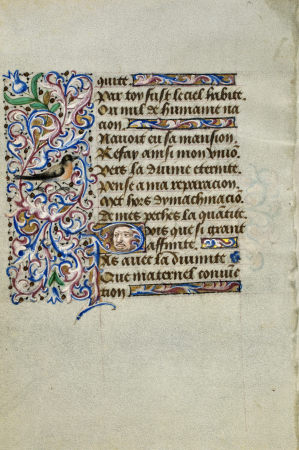 quite.
Par toy fust le ciel habite.
Ou nul de humaine na
cion.
Navoit eu sa mansion.
Refay ainsi mon
Vers la divine eternite.
Pense a ma reparacion.
hors dymaginaciõ.
De mes peches la quantite.
Dois que si grant
affinite.
As avec la divinite
Que maternel convẽ
tion.